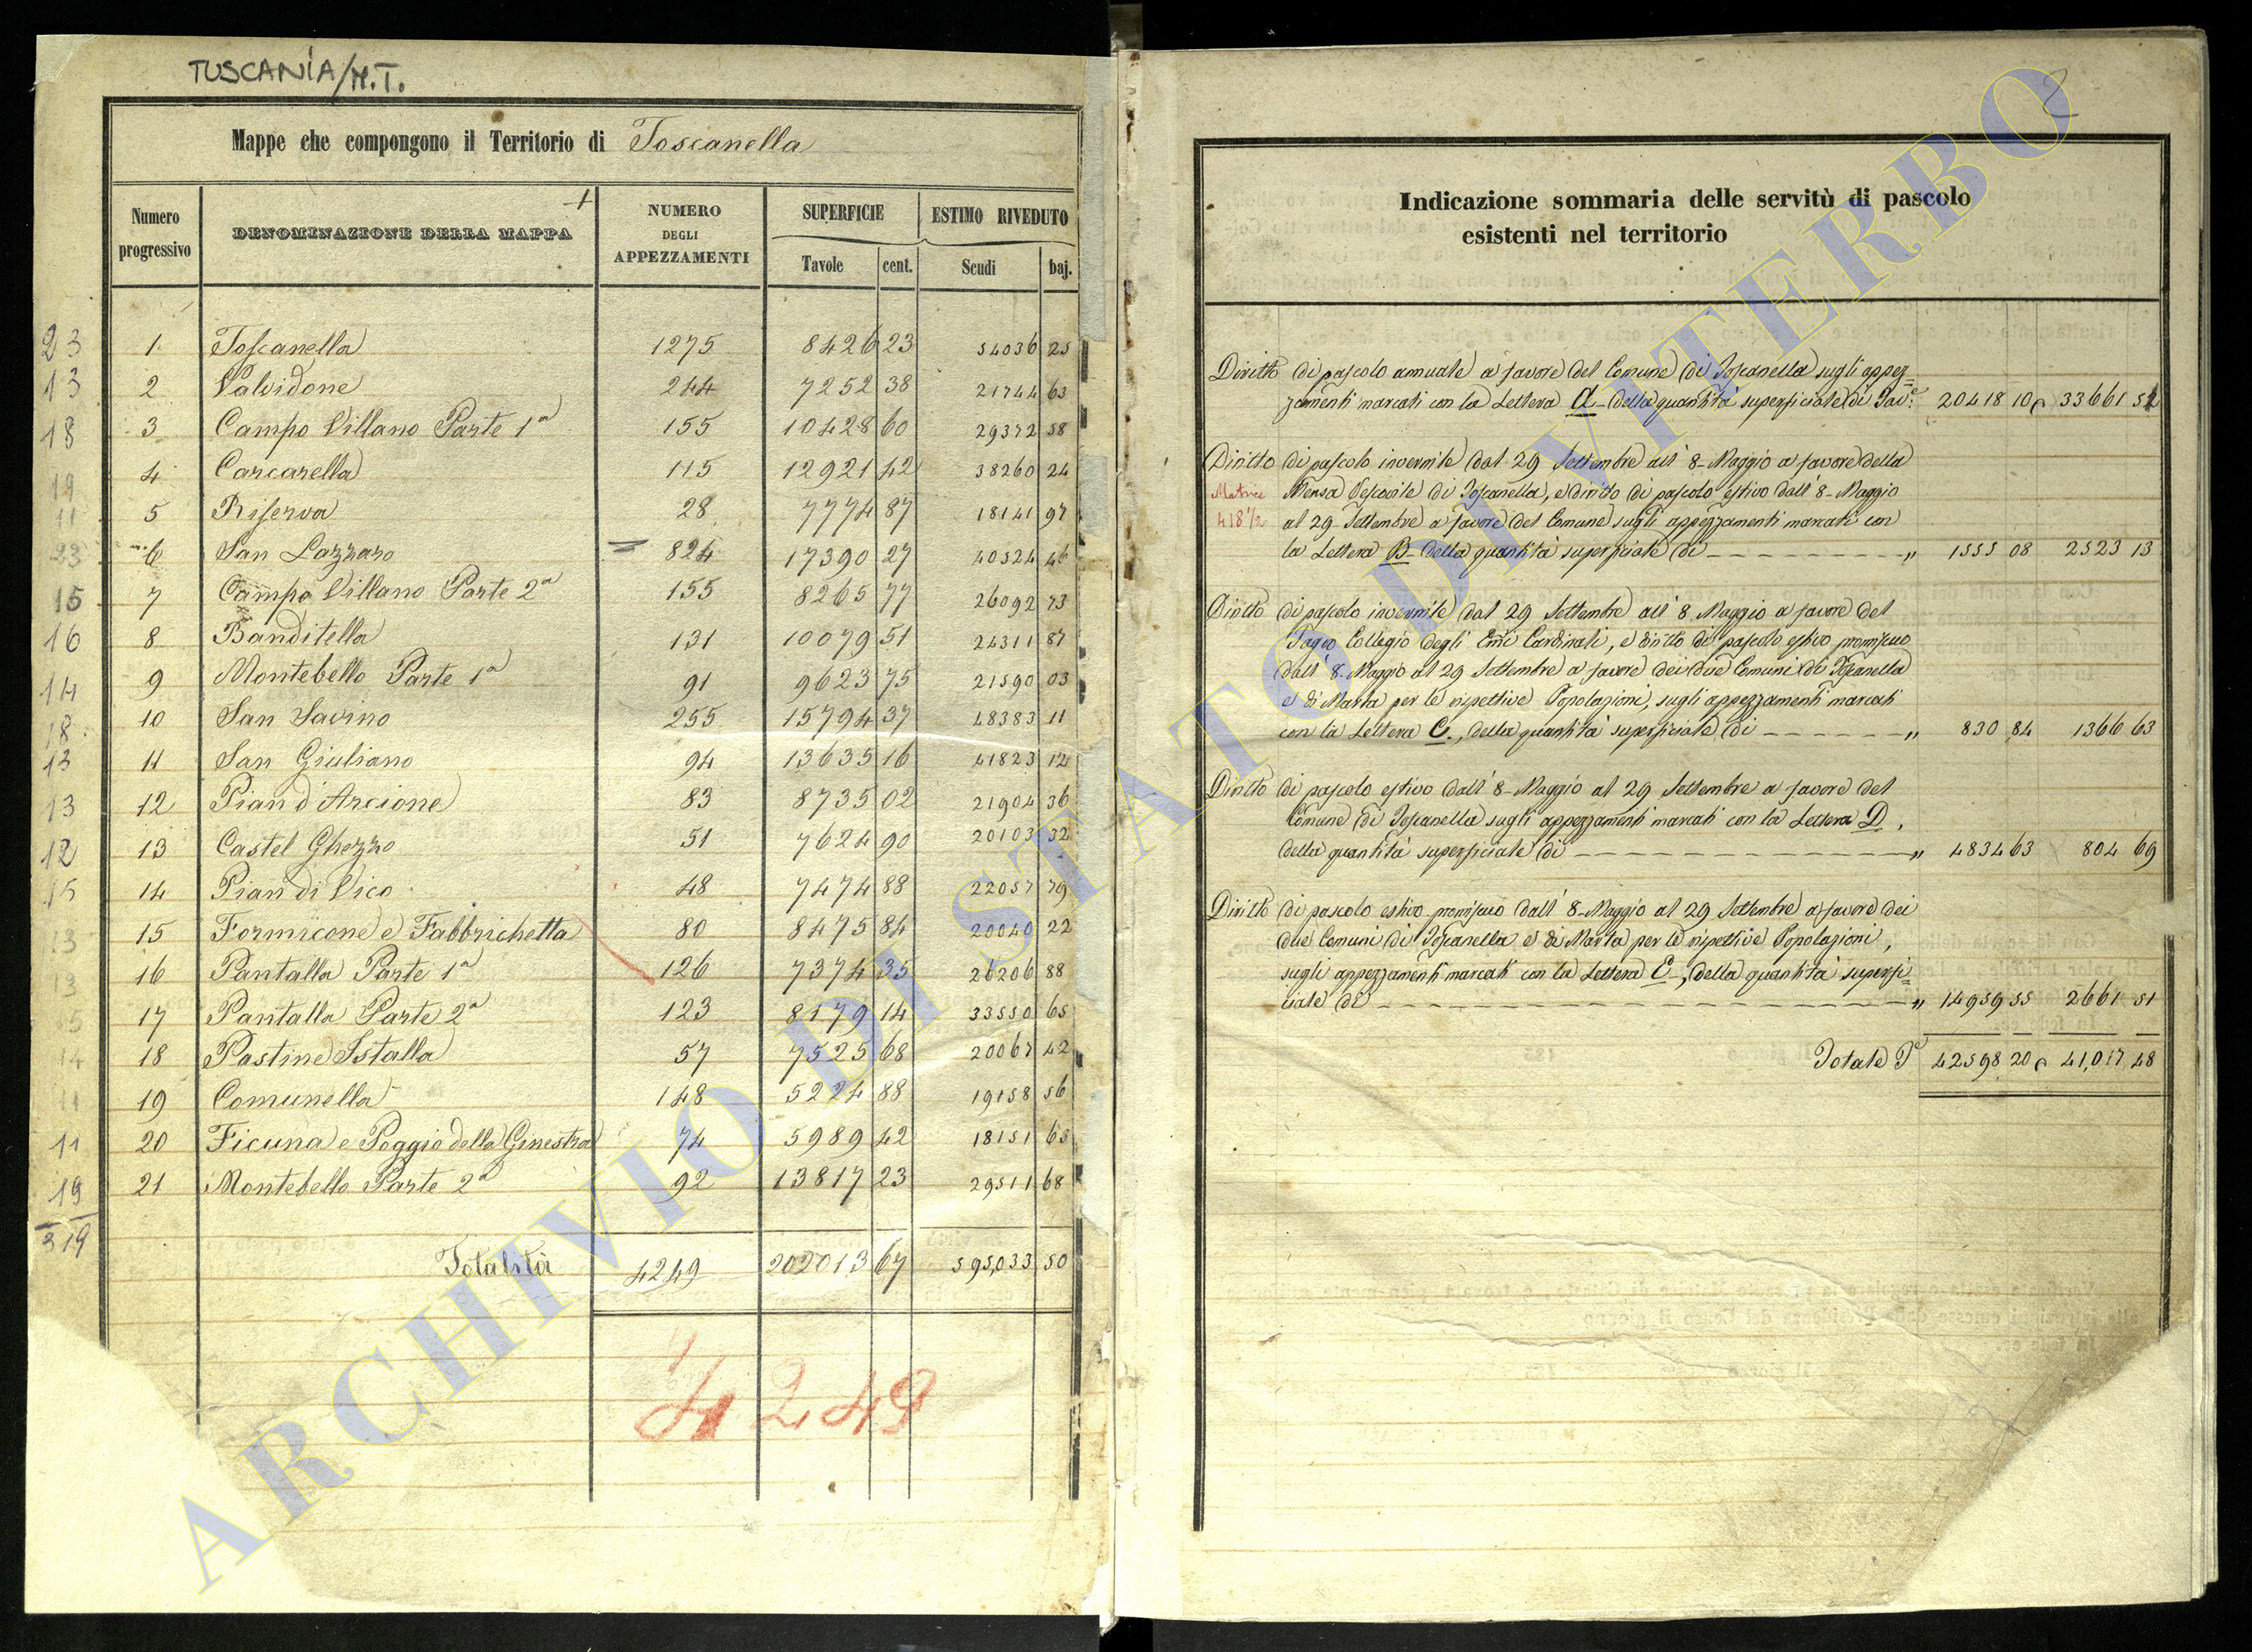 TUSCANIA/M.T.
Mappe che compongono il Territorio di Toscanella
Numero progressivo
DENOMINAZIONE DELLA MAPPA
NUMERO DEGLI APPEZZAMENTI
SUPERFICIE
ESTIMO RIVEDUTO
Tavole cent. Scudi baj.
23 1 Toscanella 1275 8426 23 54036 25
13 2 Valvidone 244 7252 38 21744 63
18 3 Campo Villano Parte 1a 155 10428 60 29372 58
19 4 Carcarella 115 12921 42 38260 24
11 5 Riserva 28 7774 87 18141 97
23 6 San Lazzaro 824 17390 27 40524 46
15 7 Campo Villano Parte 2a 155 8265 77 26092 73
16 8 Banditella 131 10079 51 24311 87
14 9 Montebello Parte 1a 91 9623 75 21590 03
18 10 San Savino 255 15794 37 48383 11
13 11 San Giuliano 94 13635 16 41823 12
13 12 Pian d'Arcione 83 8735 02 21904 36
12 13 Castel Ghezzo 51 7624 90 20103 32
15 14 Pian di Vico 48 7474 88 22057 79
13 15 Formicone e Fabbrichetta 80 8475 84 20040 22
13 16 Pantalla Parte 1a 126 7374 35 26206 88
15 17 Pantalla Parte 2a 123 8179 14 33550 65
14 18 Pastine Istalla 57 7525 68 20067 42
11 19 Comunella 148 5224 88 19158 56
11 20 Ficuna e Poggio della Ginestra 74 5989 42 18151 63
19 21 Montebello Parte 2a 92 13817 23 29511 68
319
Totalità 4249 202013 67 595,033 50
4249
2
Indicazione sommaria delle servitù di pascolo
esistenti nel territorio
Diritto di pascolo annuale a favore del Comune di Toscanella sugli appez=
zamenti marcati con la Lettera A della quantità superficiale di Tav.e 20418 10 33661 52
Diritto di pascolo invernile dal 29 Settembre all' 8 Maggio a favore della
Matrice Mensa Vescovile di Toscanella, e diritto di pascolo estivo dall' 8 Maggio
418 1/2 al 29 Settembre a favore del Comune sugli appezzamenti marcati con
la Lettera B della quantità superficiale di " 1555 08 2523 13
Diritto di pascolo invernile dal 29 Settembre all' 8 Maggio a favore del
Sagro Collegio degli Emi Cardinali, e diritto di pascolo estivo promiscuo
dall' 8 Maggio al 29 Settembre a favore dei due Comuni di Toscanella
e di Marta per le rispettive Popolazioni, sugli appezzamenti marcati
con la Lettera C., della quantità superficiale di " 830 84 1366 63
Diritto di pascolo estivo dall' 8 Maggio al 29 Settembre a favore del
Comune di Toscanella sugli appezzamenti marcati con la Lettera D,
della quantità superficiale di " 4834 63 804 69
Diritto di pascolo estivo promiscuo dall' 8 Maggio al 29 Settembre a favore dei
due Comuni di Toscanella e di Marta per le rispettive Popolazioni,
sugli appezzamenti marcati con la Lettera E, della quantità superfi=
ciale di " 14959 55 2661 51
Totale 42598 20 41,017 48
ARCHIVIO DI STATO DI VITERBO